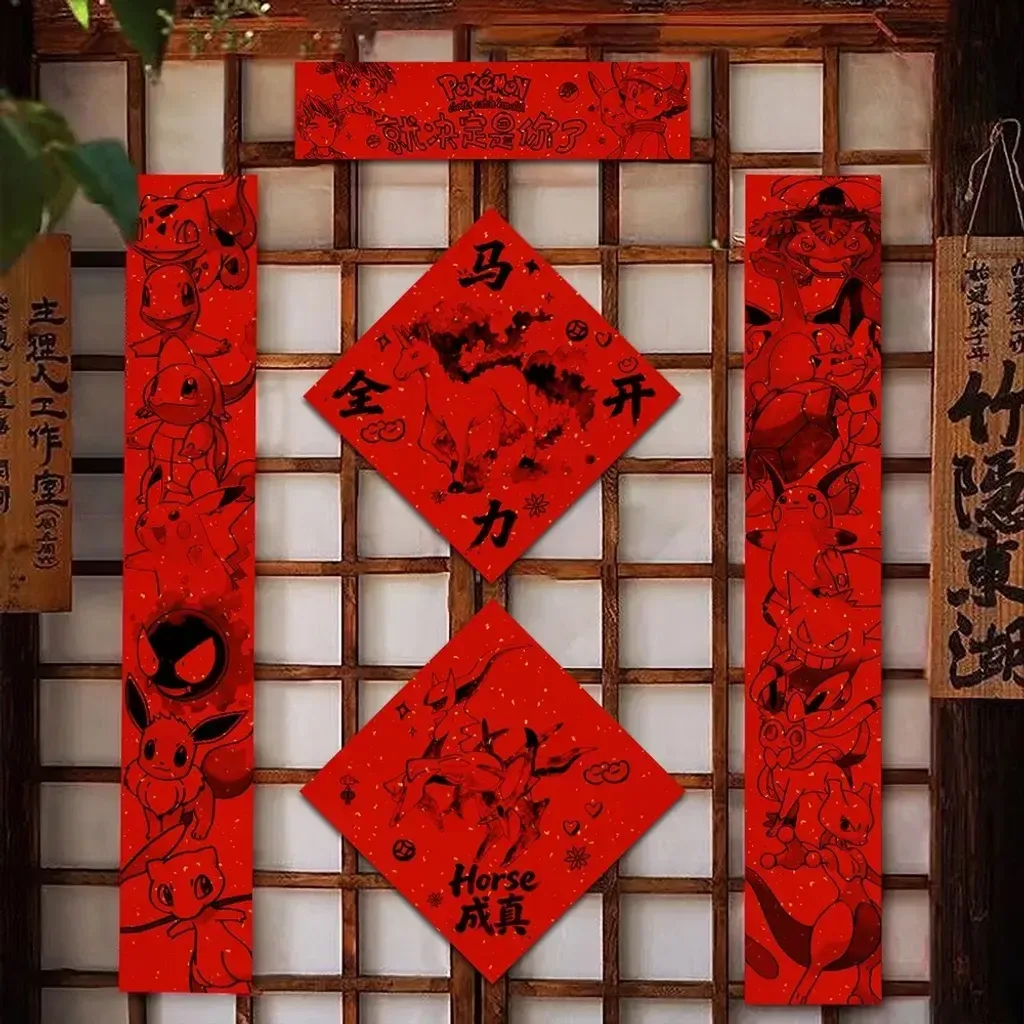 POKéMON
就决定是你了
马
全 开
力
Horse
成真
主理人工作室
始建庚子年
竹隱東湖